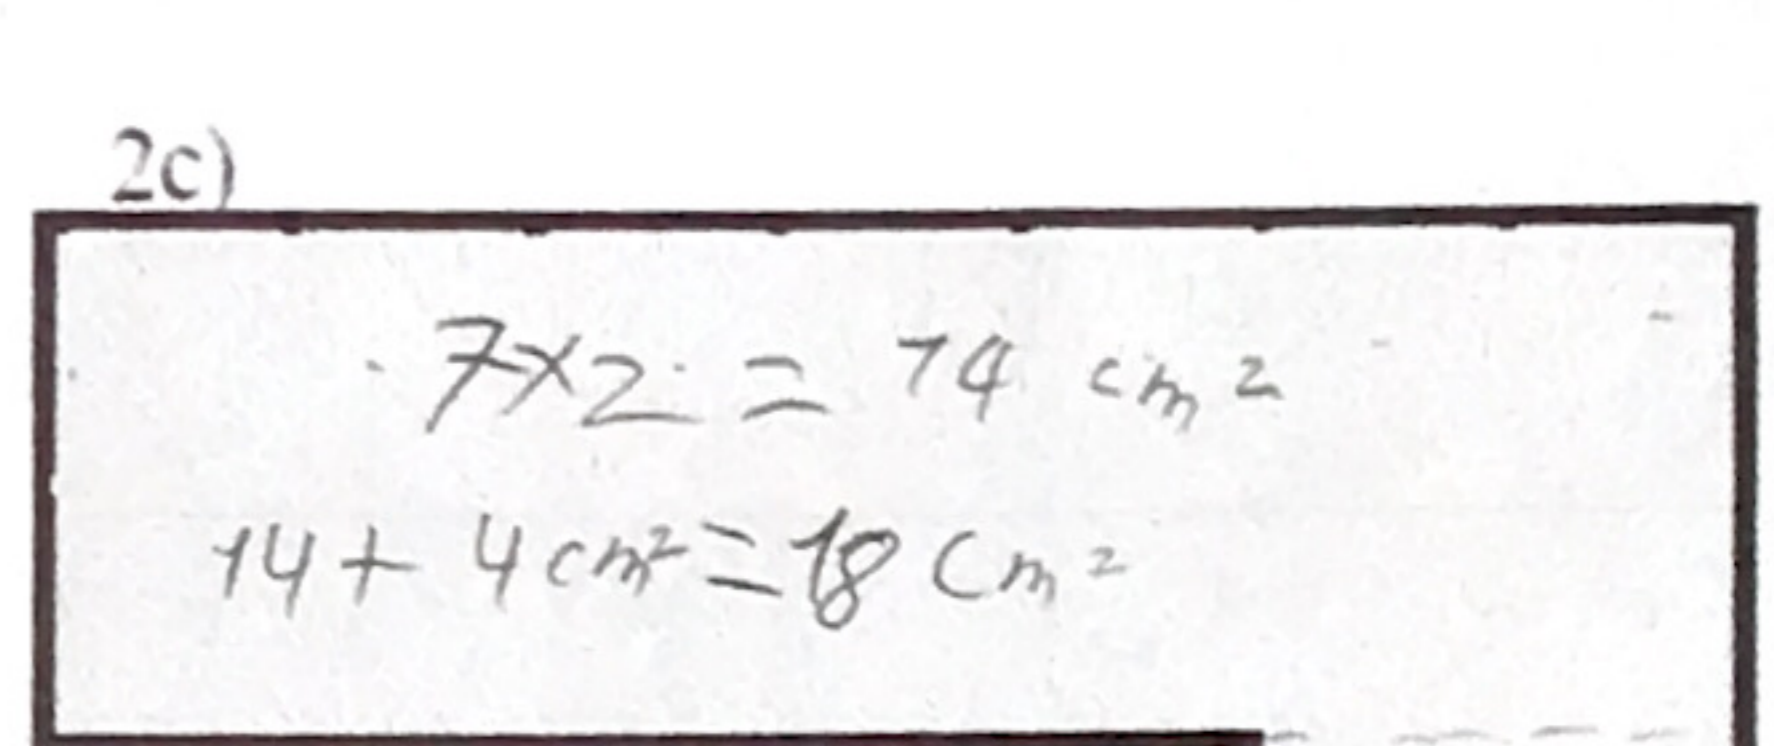 2c)
7×2 = 14 cm²
14 + 4 cm² = 18 cm²